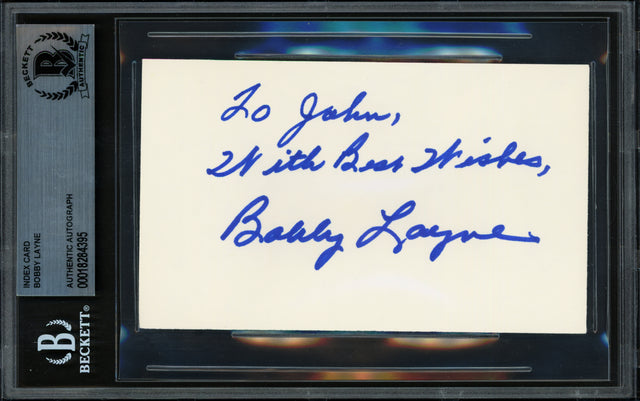 BECKETT
AUTHENTIC
INDEX CARD
BOBBY LAYNE
AUTHENTIC AUTOGRAPH
00018284395
B
BECKETT®
To John,
With Best Wishes,
Bobby Layne